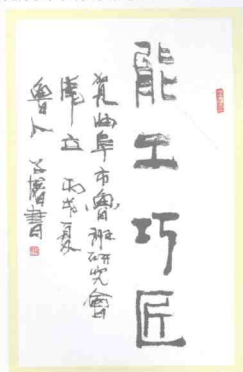 能工巧匠
贺曲阜市鲁班研究會
成立 丙戌夏
魯人 書